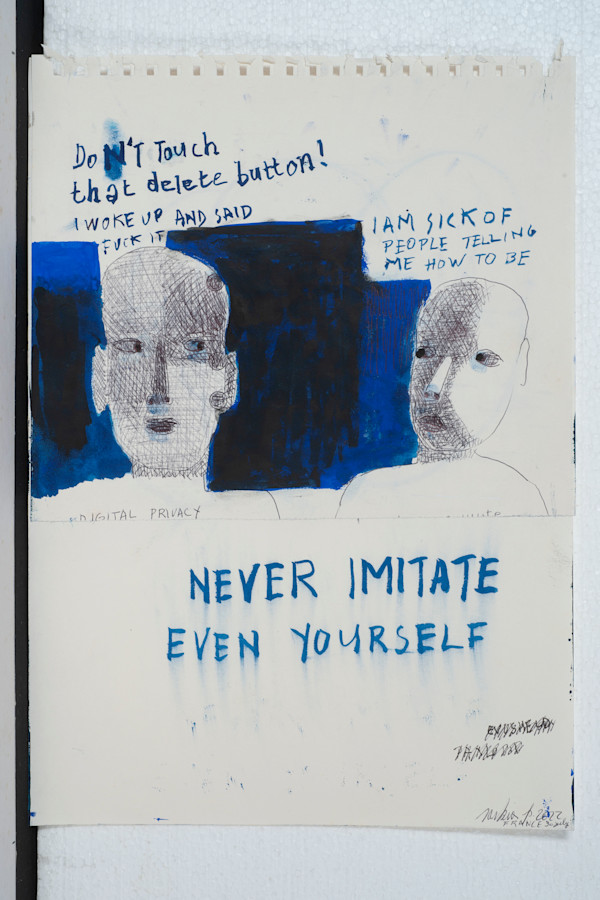 DoN'T Touch
that delete button!
I WOKE UP AND SAID
FUCK IT
I AM SICK OF
PEOPLE TELLING
ME HOW TO BE
DIGITAL PRIVACY
NEVER IMITATE
EVEN YOURSELF
2022
FRANCE